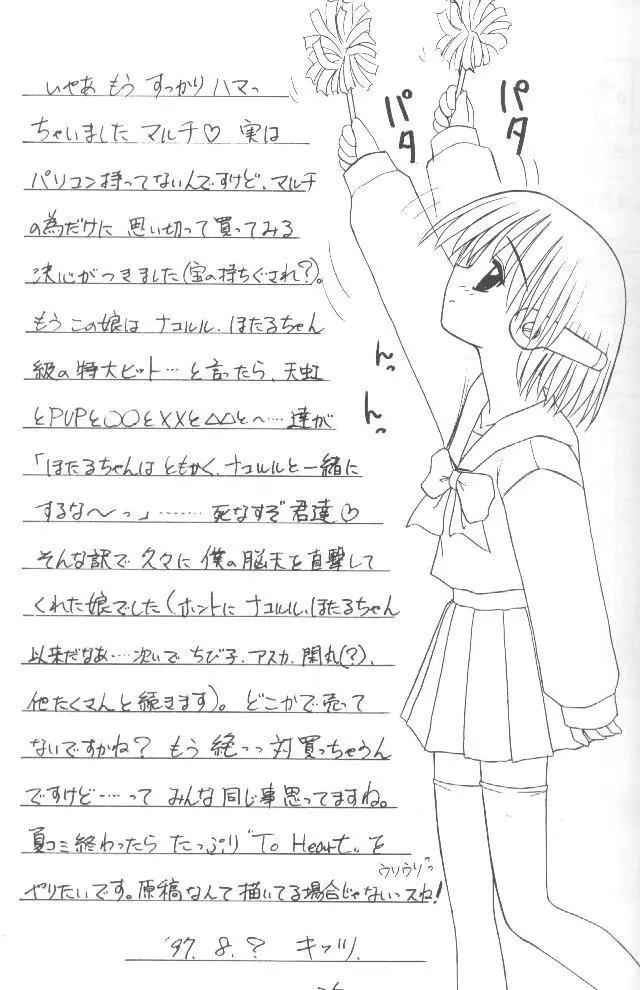 いやあ もう すっかり ハマっ
ちゃいました マルチ♡ 実は
パソコン持ってないんですけど、マルチ
の為だけに 思い切って買ってみる
決心がつきました(宝の持ちぐされ?)。
もう この娘は ナコルル、ほたるちゃん
級の 特大ヒット… と言ったら、天虹
とPVPと○○と××と△△と〜… 達が
「ほたるちゃんは ともかく、ナコルルと一緒に
するな〜っ」……… 死なすぞ 君達♡
そんな訳で 久々に 僕の脳天を直撃して
くれた娘でした(ホントに ナコルル、ほたるちゃん
以来だなあ… 次いで ちび子、アスカ、(?)、
他たくさんと続きます)。どこかで売って
ないですかね? もう 絶っっ対買っちゃうん
ですけど……って みんな同じ事思ってますね。
夏コミ終わったら たっぷり “To Heart„ を
やりたいです。原稿なんて描いてる場合じゃないっスね!
ウリウリ~っ
'97. 8. ?
パタ
パタ
んっ
んっ